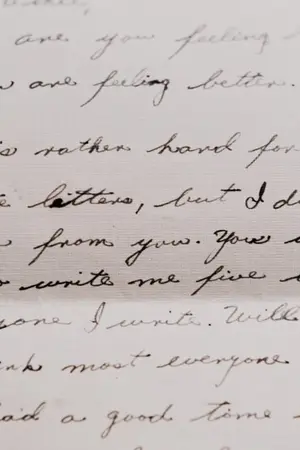 are you feeling
are feeling better.
rather hard for
letters, but I
from you. You
write me five
I write. Will
most everyone
had a good tome